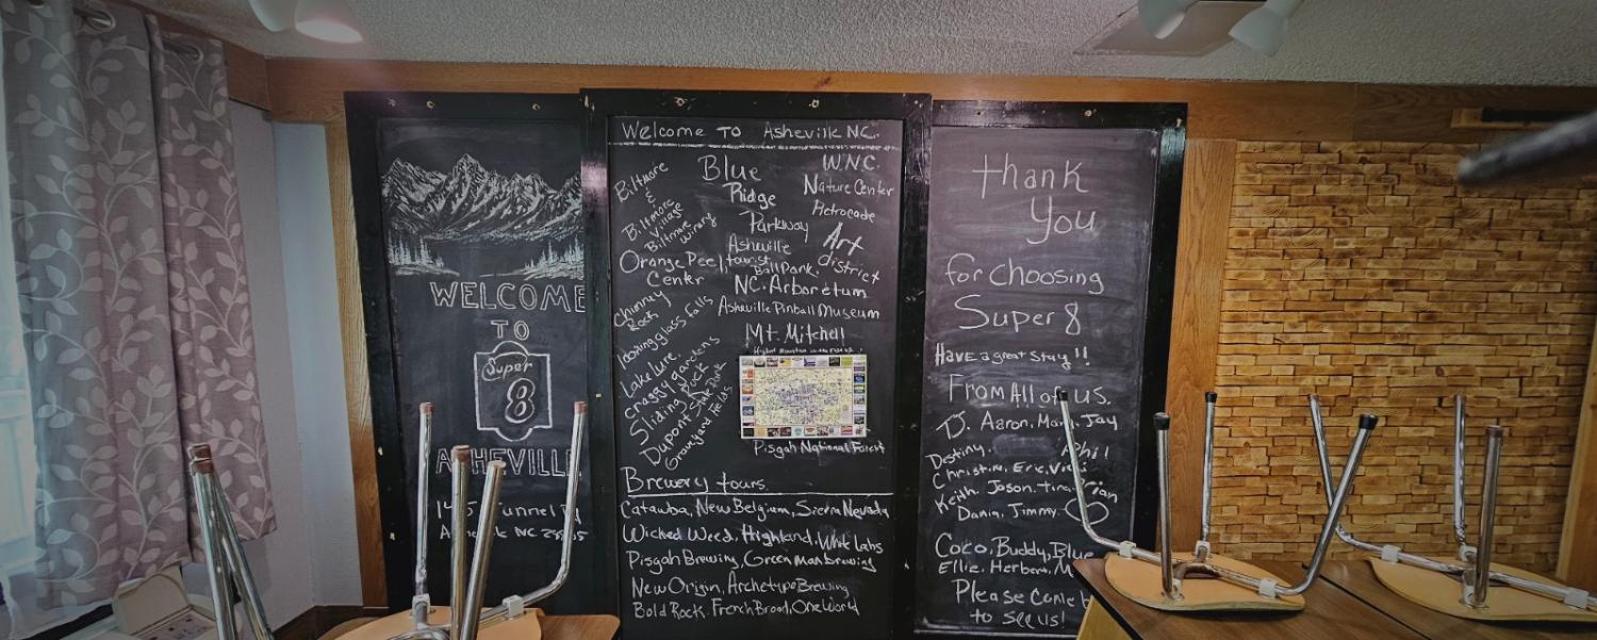 WELCOME
TO
Super
8
Welcome TO Asheville NC.
Biltmore
&
Biltmore
Village
Biltmore
Winery
Orange Peel
Center
Chimney
Rock
looking glass falls
Lake lure.
craggy gardens
Sliding Rock
Dupont State Park
Graveyard fields
Blue
Ridge
Parkway
Asheville
tourist
Ball Park.
NC. Arboretum
Asheville Pinball Museum
Mt. Mitchell
Pisgah National Forest
W.N.C.
Nature Center
Retrocade
Art
district
Brewery tours.
Catawba, New Belgium, Sierra Nevada
Wicked Weed, Highland, White Labs
Pisgah Brewing, Green man brewing
New Origin, Archetype Brewing
Bold Rock, French Broad, One World
thank
You
for choosing
Super 8
Have a great stay!!
From All of us.
D. Aaron, Mary, Jay
Destiny. Phil
Christine, Eric, Vicki
Keith. Jason. tina.
Dania, Jimmy.
Coco, Buddy, Blue
Ellie, Herbert,
Please come
to see us!